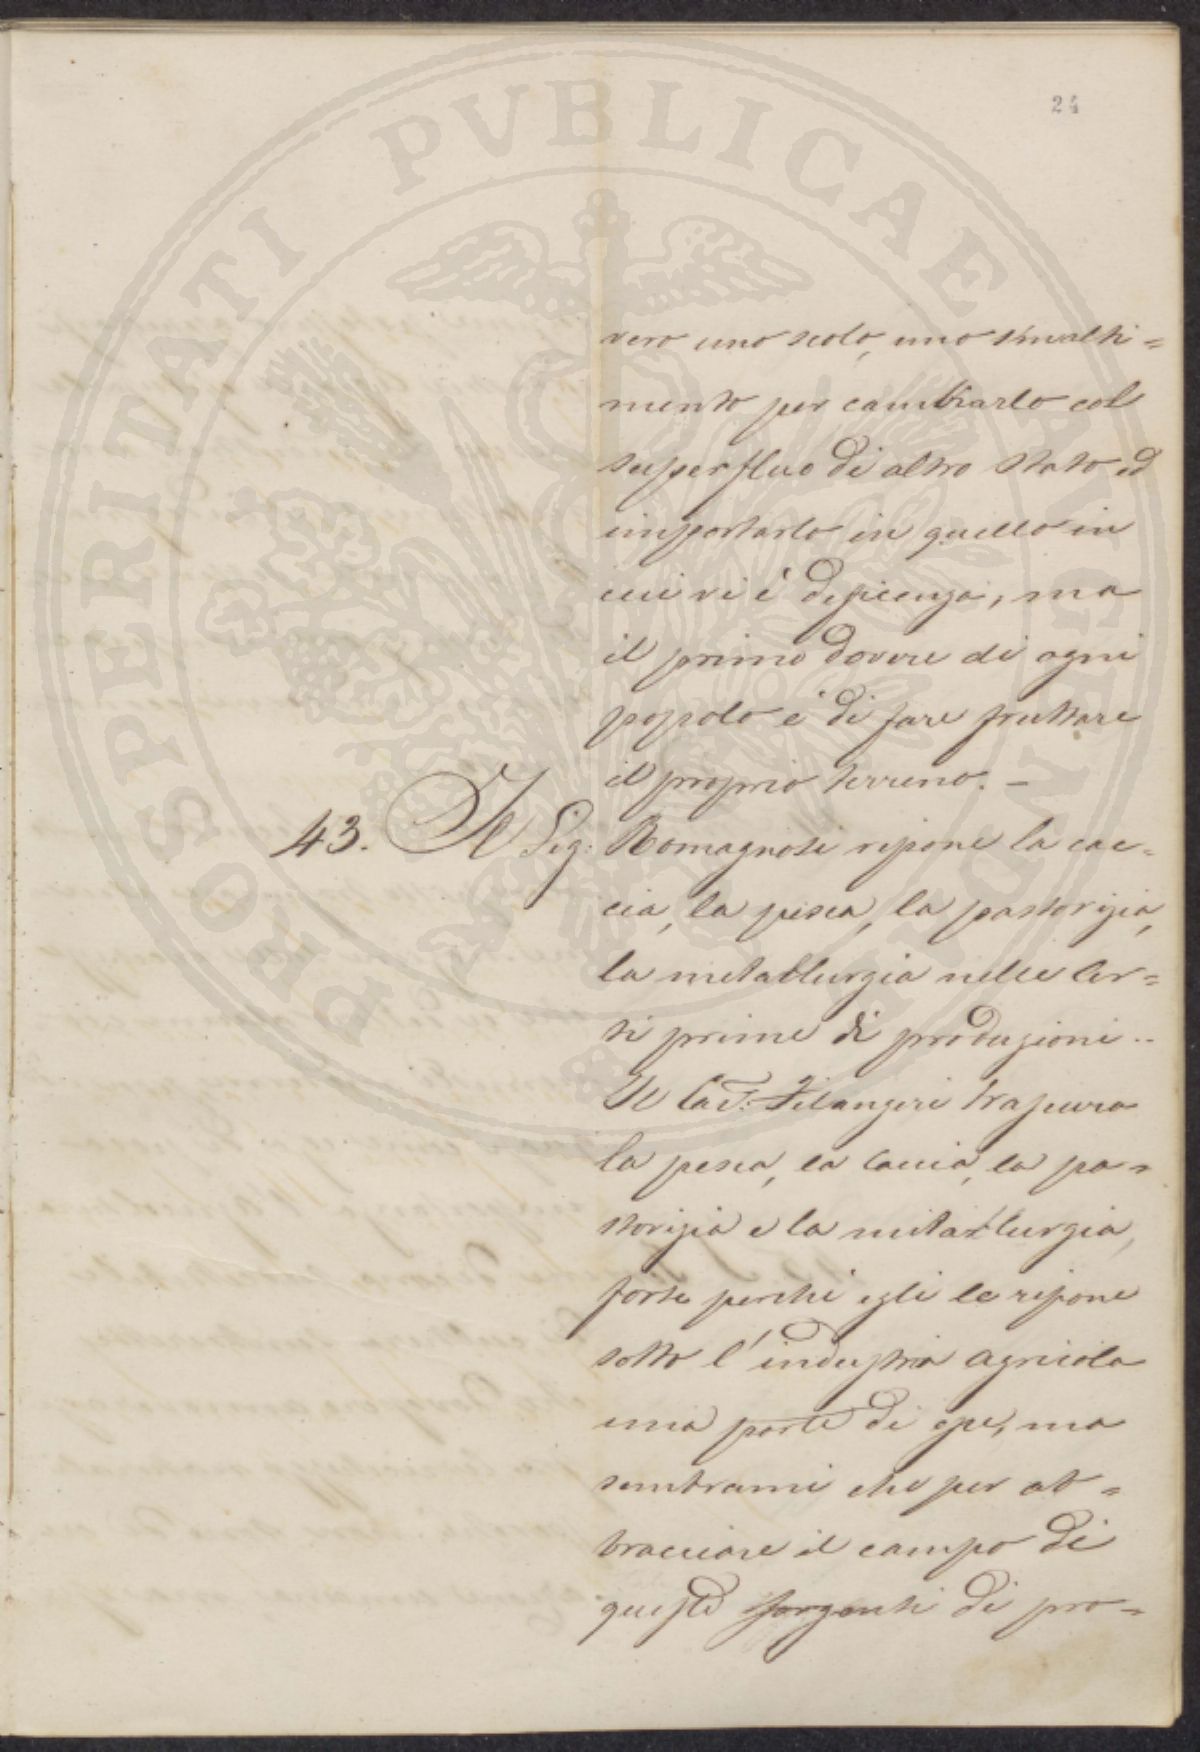 24
PROSPERITATI PVBLICAE AVGENDAE
vero uno scolo, uno smalti=
mento per cambiarlo col
superfluo di altro stato ed
importarlo in quello in
cui vi è deficienza, ma
il primo dovere di ogni
popolo è di fare fruttare
il proprio terreno. –
43. Il Sig: Romagnosi ripone la cac=
cia, la pesca, la pastorizia,
la metallurgia nelle Ar=
ti prime di produzioni..
Il Cav: Filangeri trascura
la pesca, la caccia, la pa=
storizia e la metallurgia,
forse perchè egli le ripone
sotto l'industria agricola
una parte di esse, ma
sembrami che per ab=
bracciare il campo di
queste sorgenti di pro=